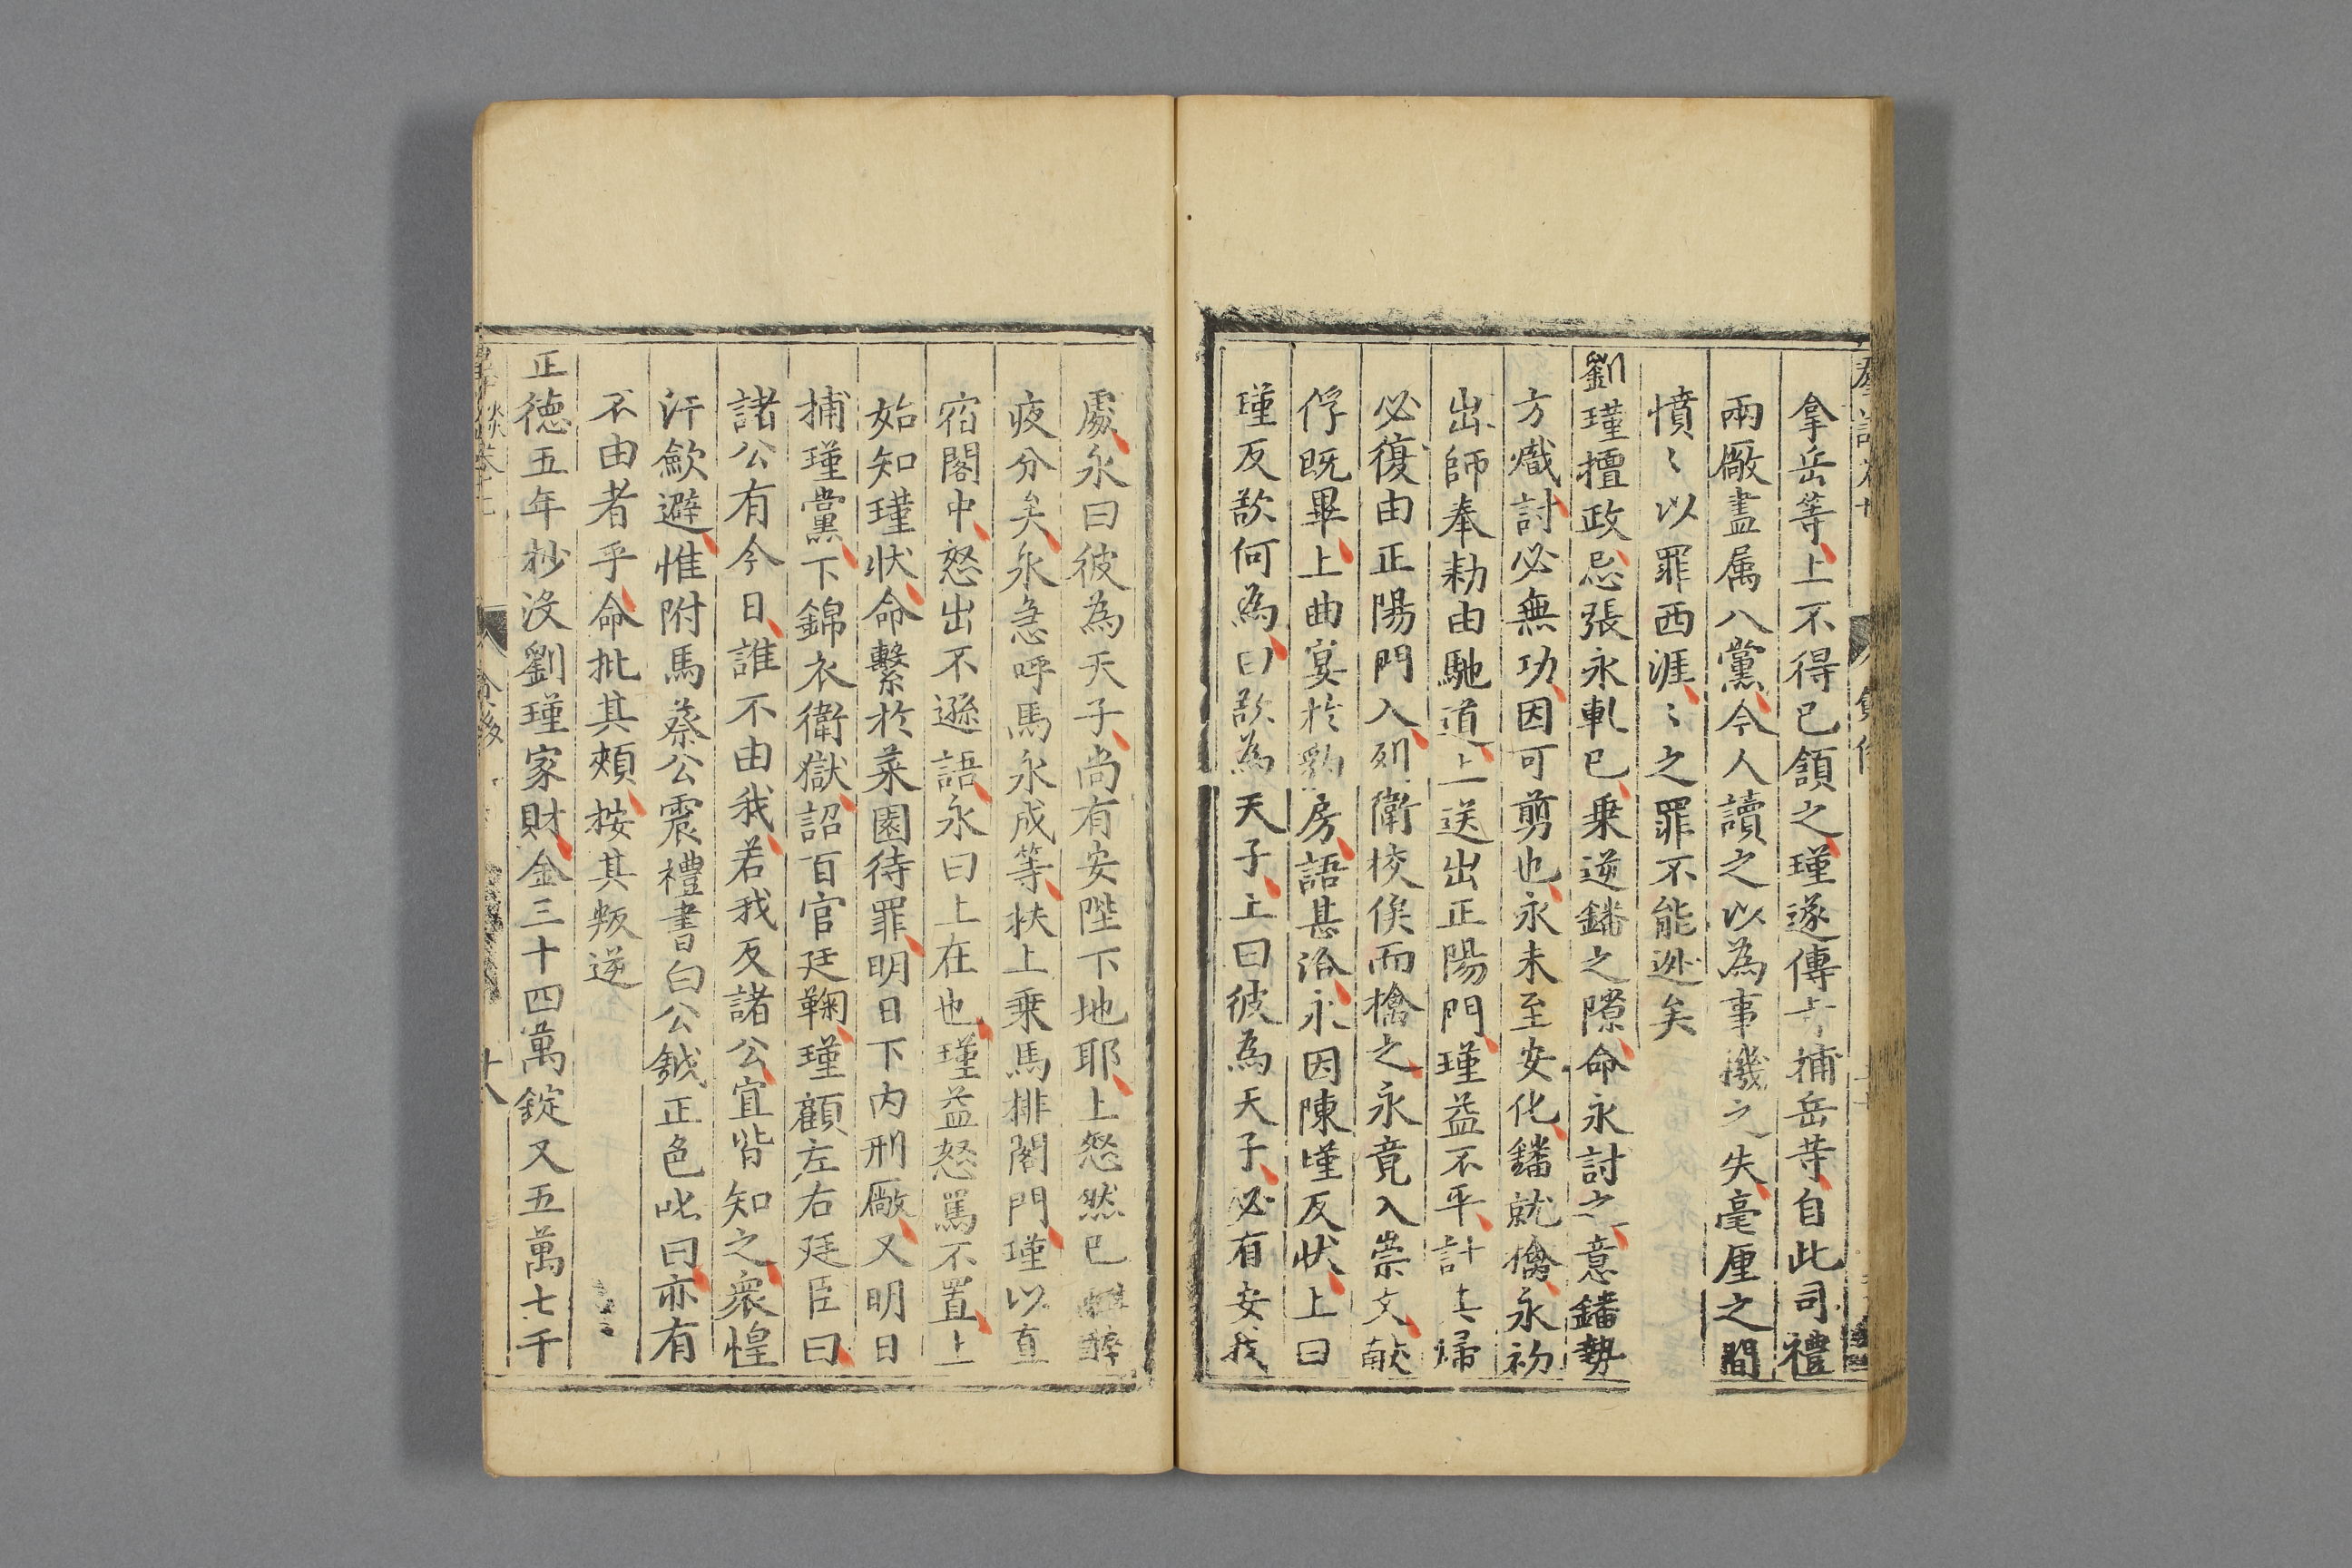 拿岳等上不得已頷之瑾遂傳捕岳等自此司禮
兩厰盡属八黨今人讀之以為事機之失毫厘之間
憤〻以罪西涯〻之罪不能逃矣
劉瑾擅政忌張永軋已乗逆鐇之隙命永討之意鐇勢
方熾討必無功因可剪也永未至安化鐇就擒永初
出師奉勑由馳道上送出正陽門瑾益不平計其歸
必復由正陽門入列衛校俟而擒之永竟入崇文献
俘既畢上曲宴於豹房語甚洽永因陳瑾反状上曰
瑾反欲何為曰欲為天子上曰彼為天子必有安我
處永曰彼為天子尚有安陛下地耶上愁然已
夜分矣永急呼馬永成等扶上乗馬排閣門瑾以直
宿閣中怒出不遜語永曰上在也瑾益怒罵不置上
始知瑾状命繫於菜園待罪明日下内刑厰又明日
捕瑾黨下錦衣衛獄詔百官廷鞠瑾顧左右廷臣曰
諸公有今日誰不由我若我反諸公宜皆知之衆惶
汗歛避惟附馬蔡公震禮書白公鉞正色叱曰亦有
不由者乎命批其頰按其叛逆
正德五年抄沒劉瑾家財金三十四萬錠又五萬七千
十八